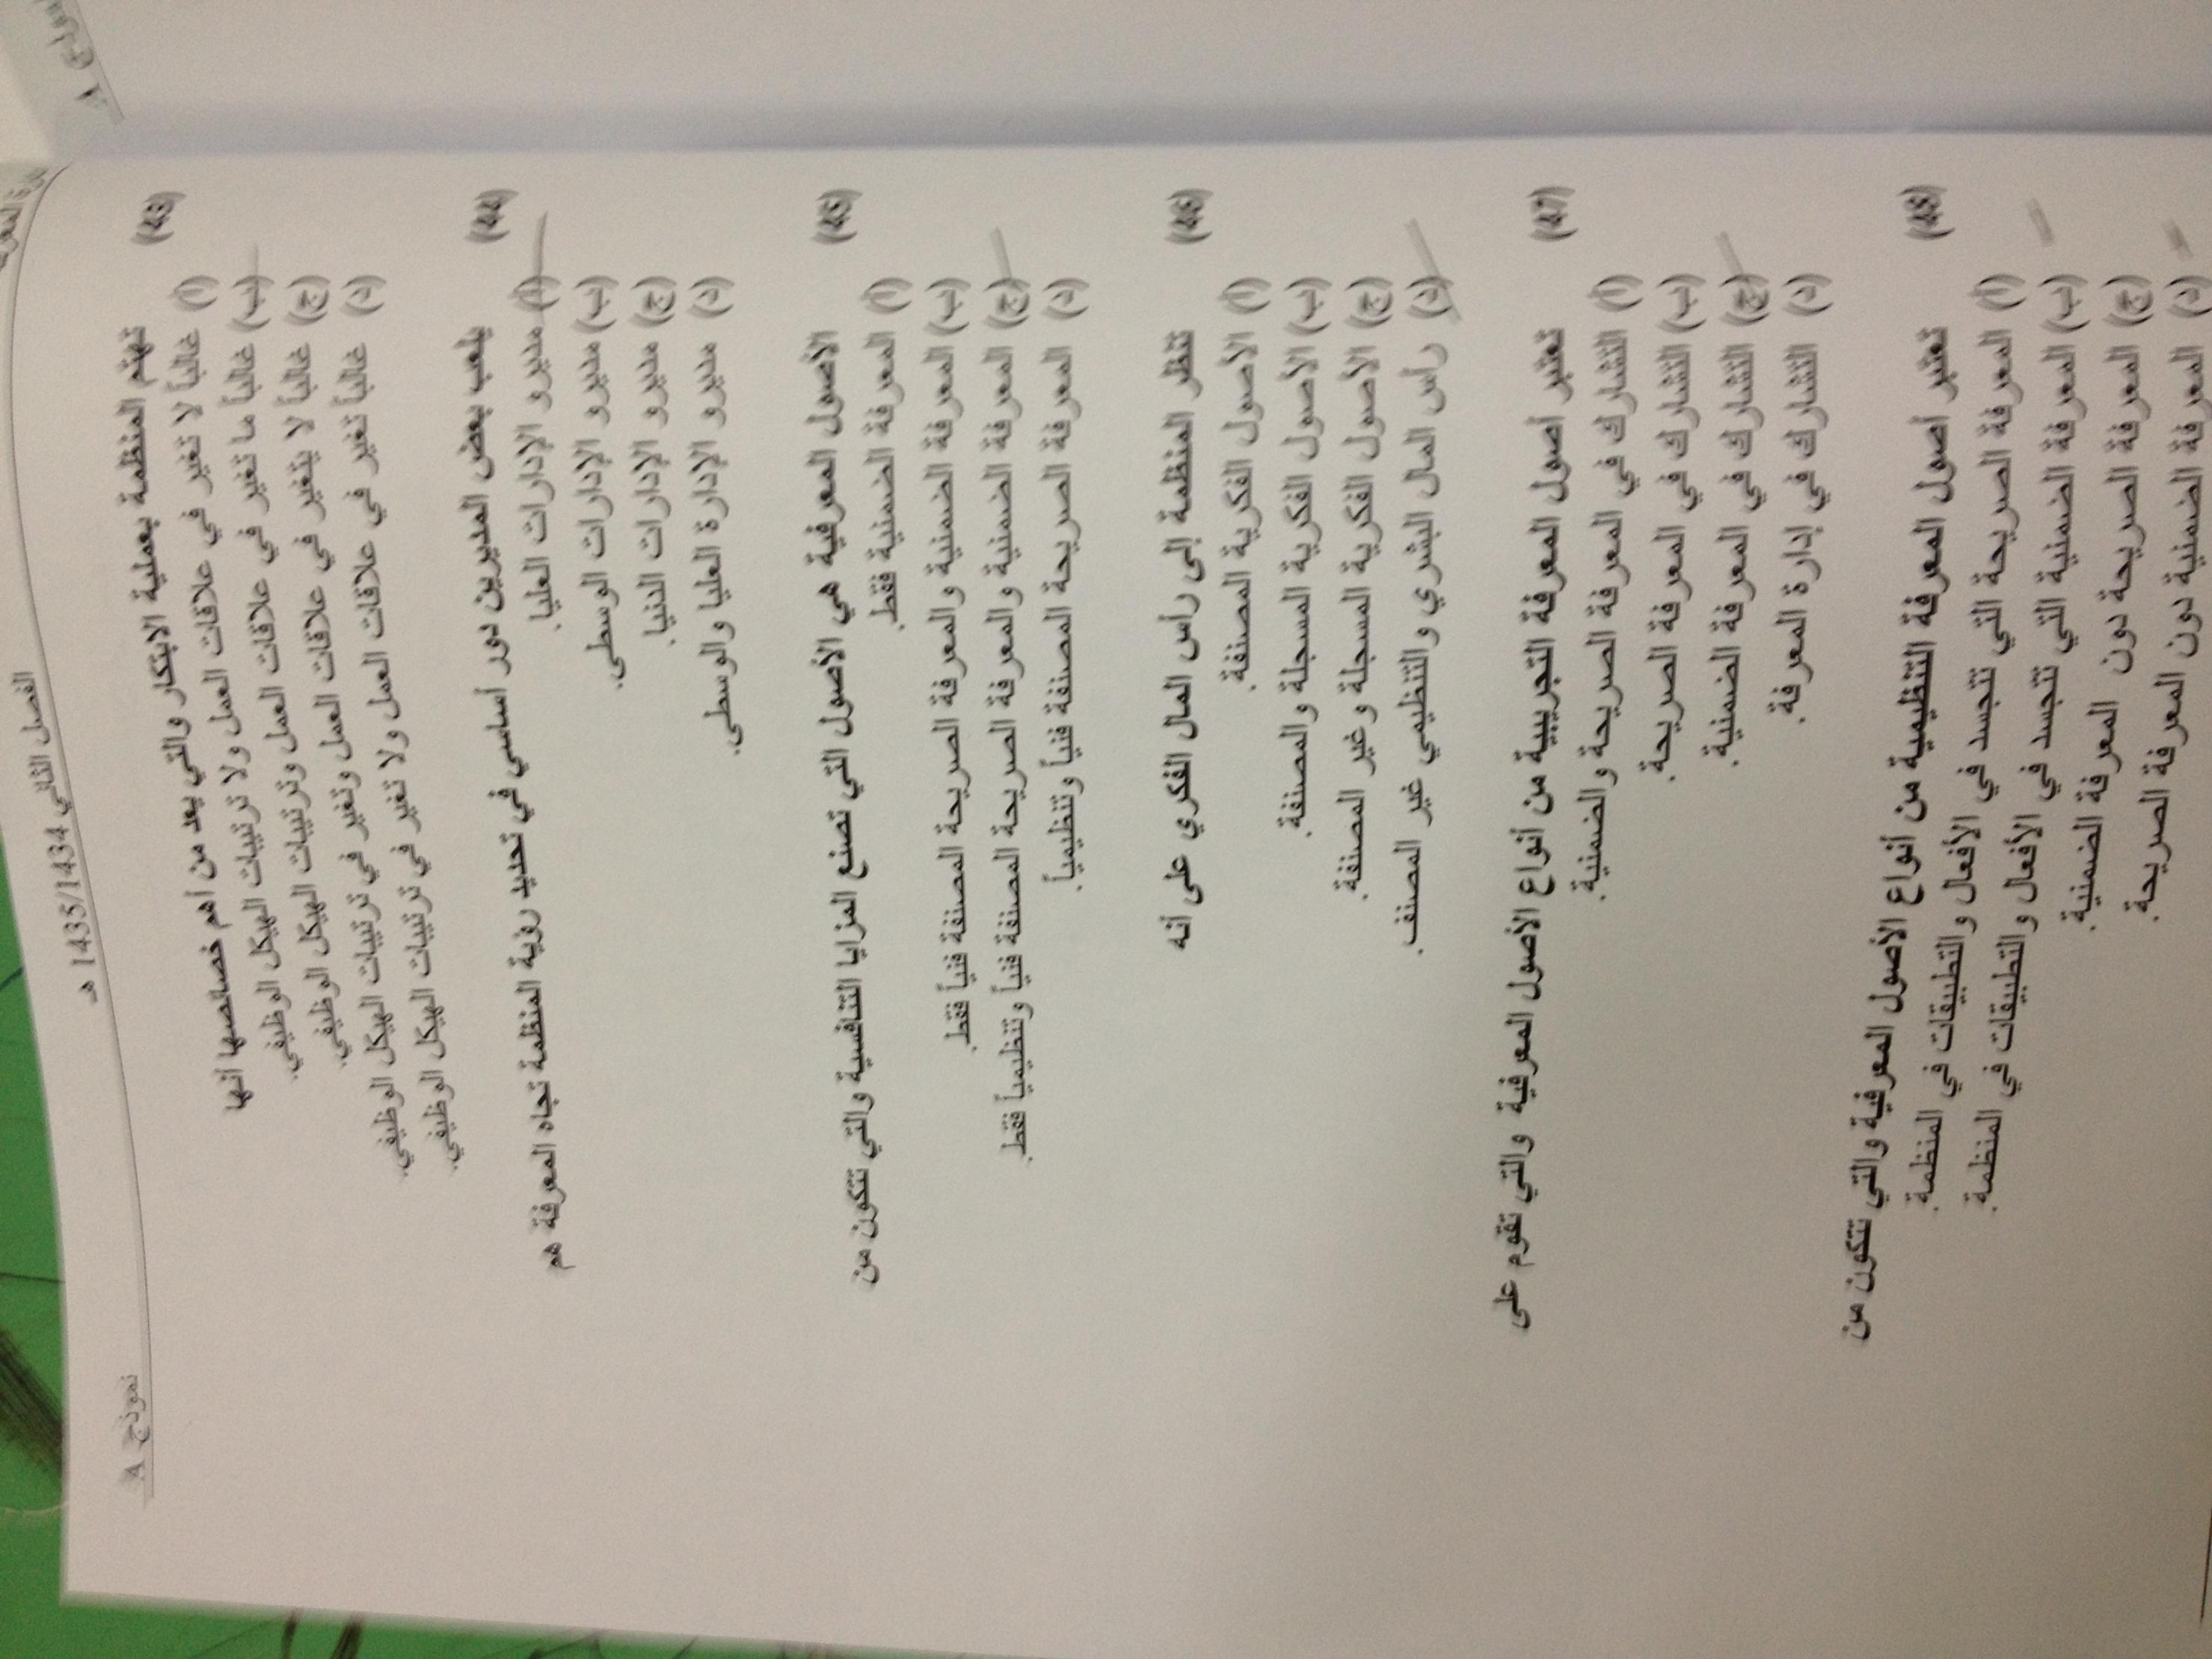 الفصل الثاني 1435/1434 هـ
نموذج A
(43) تهتم المنظمة بعملية الابتكار والتي يعد من أهم خصائصها أنها
(أ) غالباً لا تغير في علاقات العمل ولا ترتيبات الهيكل الوظيفي.
(ب) غالباً ما تغير في علاقات العمل وترتيبات الهيكل الوظيفي.
(ج) غالباً لا يتغير في علاقات العمل وتغير في ترتيبات الهيكل الوظيفي.
(د) غالباً تغير في علاقات العمل ولا تغير في ترتيبات الهيكل الوظيفي.
(44) يلعب بعض المديرين دور أساسي في تحديد رؤية المنظمة تجاه المعرفة هم
(أ) مديرو الإدارات العليا.
(ب) مديرو الإدارات الوسطى.
(ج) مديرو الإدارات الدنيا.
(د) مديرو الإدارة العليا والوسطى.
(45) الأصول المعرفية هي الأصول التي تصنع المزايا التنافسية والتي تتكون من
(أ) المعرفة الضمنية فقط.
(ب) المعرفة الضمنية والمعرفة الصريحة المصنفة فنياً فقط.
(ج) المعرفة الضمنية والمعرفة الصريحة المصنفة فنياً وتنظيمياً فقط.
(د) المعرفة الصريحة المصنفة فنياً وتنظيمياً.
(46) تنظر المنظمة إلى رأس المال الفكري على أنه
(أ) الأصول الفكرية المصنفة.
(ب) الأصول الفكرية المسجلة والمصنفة.
(ج) الأصول الفكرية المسجلة وغير المصنفة.
(د) رأس المال البشري والتنظيمي غير المصنف.
(47) تعتبر أصول المعرفة التجريبية من أنواع الأصول المعرفية والتي تقوم على
(أ) التشارك في المعرفة الصريحة والضمنية.
(ب) التشارك في المعرفة الصريحة.
(ج) التشارك في المعرفة الضمنية.
(د) التشارك في إدارة المعرفة.
(48) تعتبر أصول المعرفة التنظيمية من أنواع الأصول المعرفية والتي تتكون من
(أ) المعرفة الصريحة التي تتجسد في الأفعال والتطبيقات في المنظمة.
(ب) المعرفة الضمنية التي تتجسد في الأفعال والتطبيقات في المنظمة.
(ج) المعرفة الصريحة دون المعرفة الضمنية.
(د) المعرفة الضمنية دون المعرفة الصريحة.